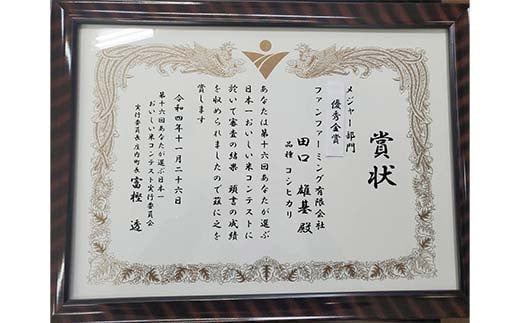 賞状
メジャー部門
優秀金賞
ファンファーミング有限会社
田口 雄基 殿
品種 コシヒカリ
あなたは第十六回あなたが選ぶ
日本一おいしい米コンテストに
於いて審査の結果 頭書の成績
を収められましたので茲に之を
賞します
令和四年十一月二十六日
第十六回あなたが選ぶ日本一
おいしい米コンテスト実行委員会
実行委員長 庄内町長 富樫 透